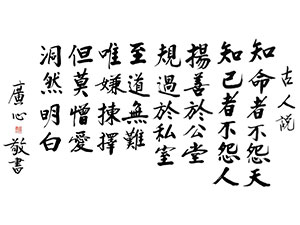 古人説
知命者不怨天
知己者不怨人
揚善於公堂
規過於私室
至道無難
唯嫌揀擇
但莫憎愛
洞然明白
廣心敬書